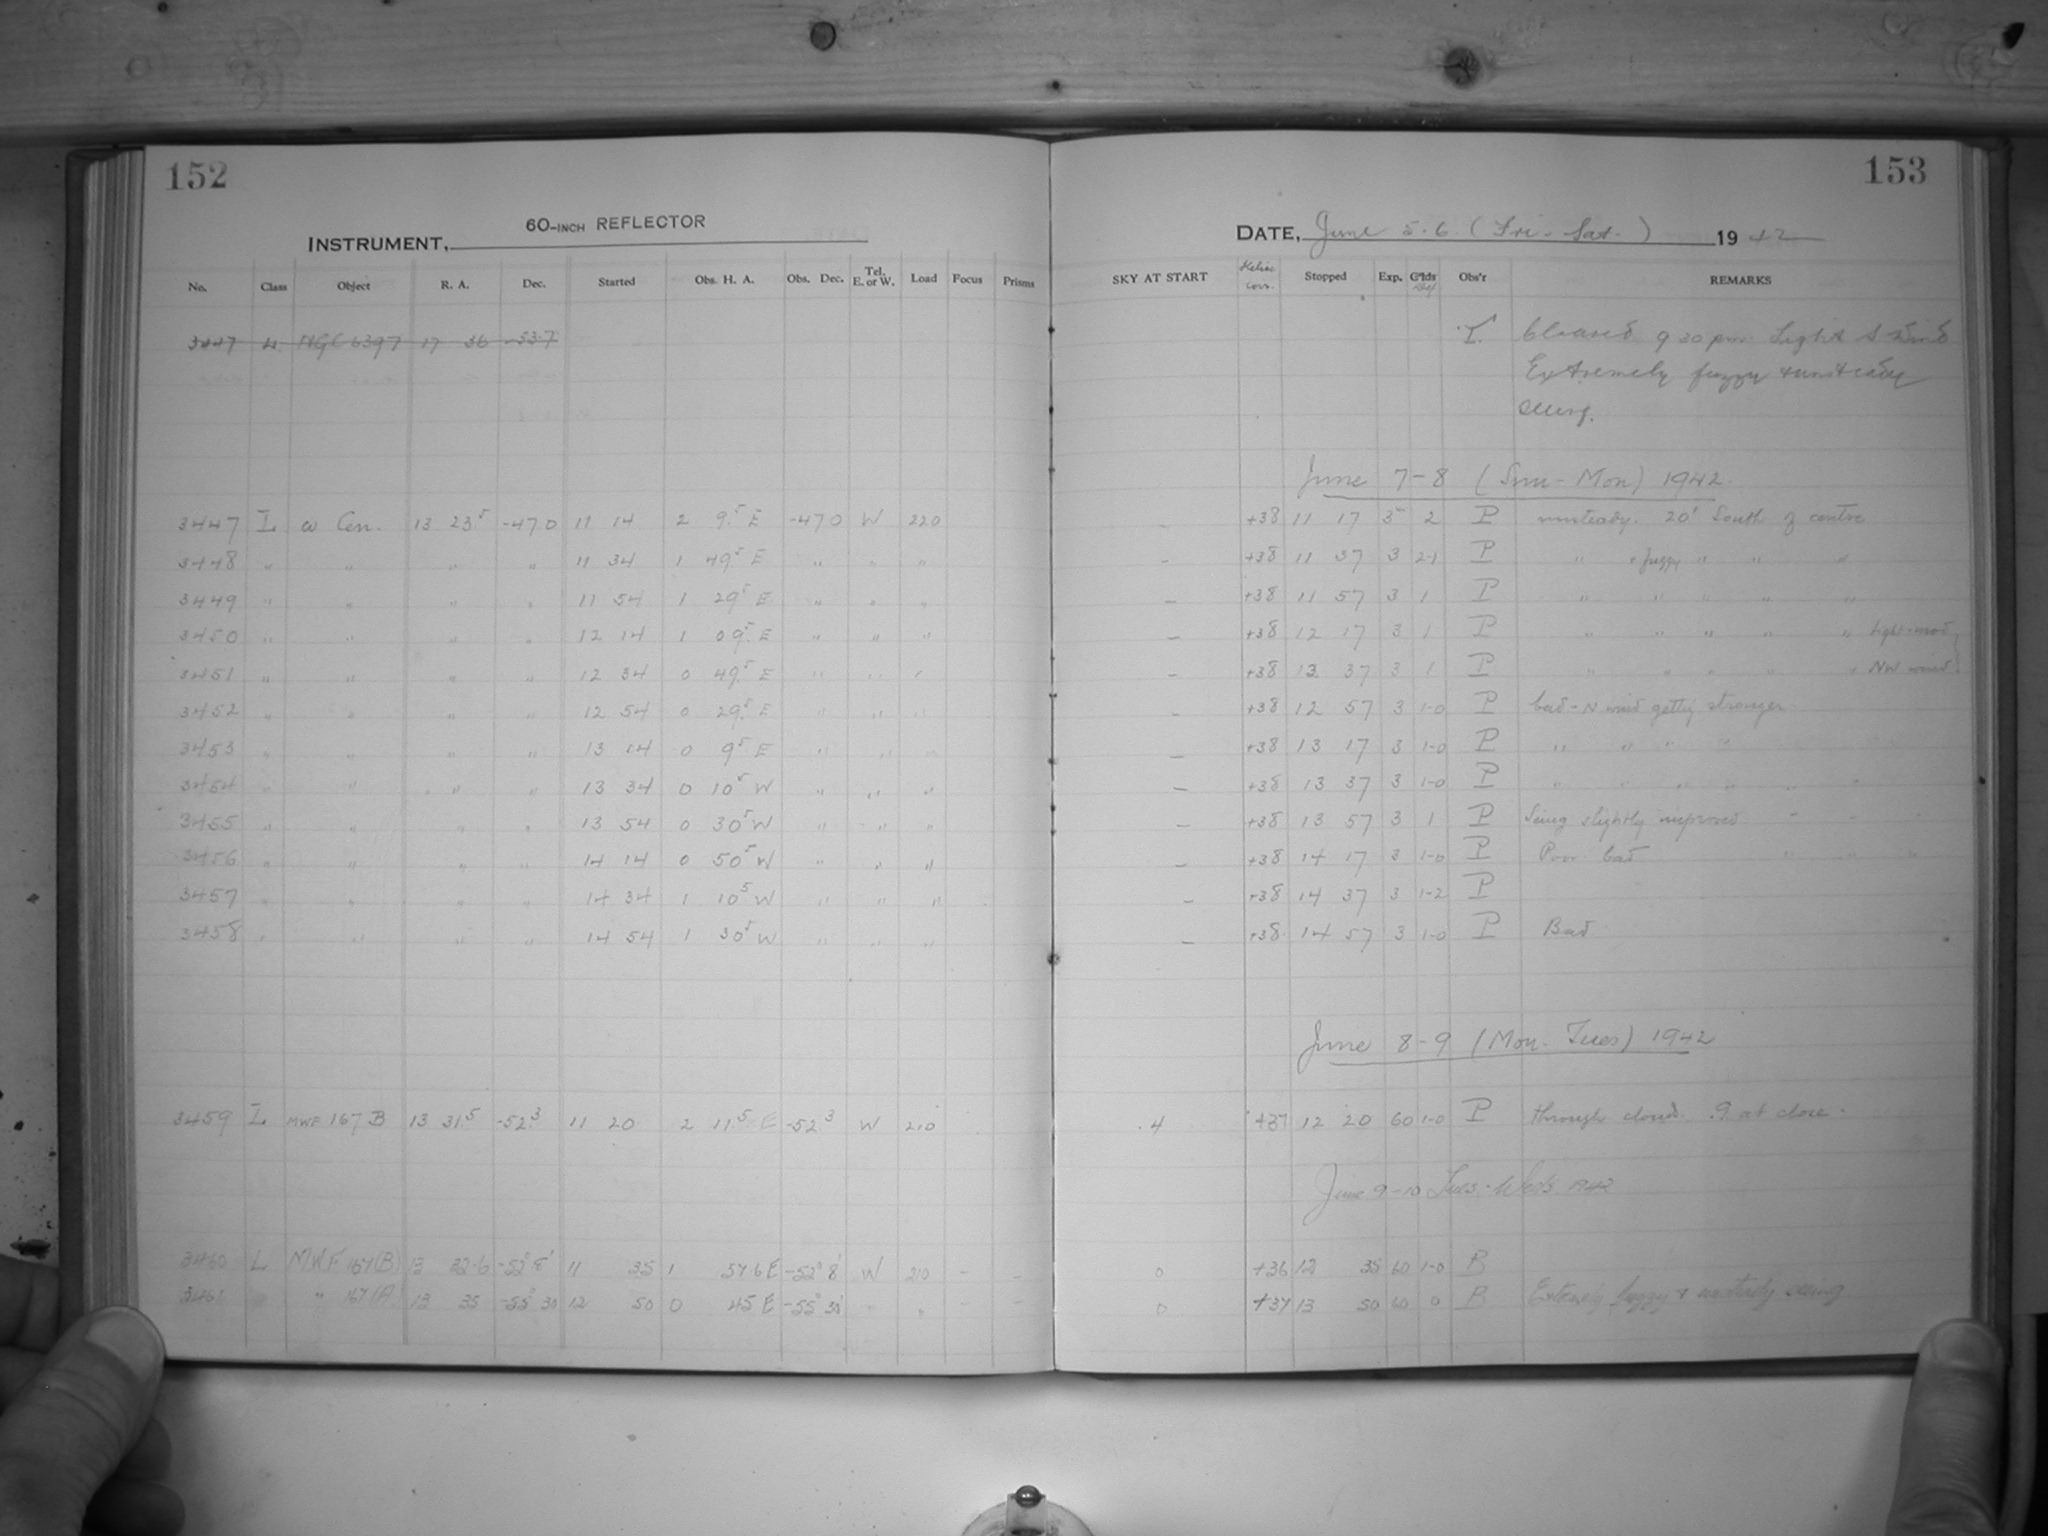 152
INSTRUMENT, 60-INCH REFLECTOR
No. Class Object R. A. Dec. Started Obs. H. A. Obs. Dec. Tel. E. or W. Load Focus Prisms
3447 L NGC 6397 17 36 -53.7
3447 L ω Cen. 13 23.5 -47.0 11 14 2 9.5 E -47.0 W 220
3448 " " " " 11 34 1 49.5 E " " "
3449 " " " " 11 54 1 29.5 E " " "
3450 " " " " 12 14 1 09.5 E " " "
3451 " " " " 12 34 0 49.5 E " " "
3452 " " " " 12 54 0 29.5 E " " "
3453 " " " " 13 14 0 9.5 E " " "
3454 " " " " 13 34 0 10.5 W " " "
3455 " " " " 13 54 0 30.5 W " " "
3456 " " " " 14 14 0 50.5 W " " "
3457 " " " " 14 34 1 10.5 W " " "
3458 " " " " 14 54 1 30.5 W " " "
3459 L MWF 167 B 13 31.5 -52.3 11 20 2 11.5 E -52.3 W 210
3460 L MWF 167(B) 13 32.6 -52° 8' 11 35 1 57.6 E -52° 8' W 210 - -
3461 " " 167(A) 13 35 -55° 30 12 50 0 45 E -55° 30' " " - -
153
DATE, June 5-6 (Fri. - Sat.) 1942
SKY AT START Helioc Corr. Stopped Exp. G'lds Obs'r REMARKS
T. Cleared 9 30 pm. Light S wind
Extremely fuzzy & unsteady
seeing.
June 7-8 (Sun - Mon) 1942
- +38 11 17 3 2 P unsteady. 20' South of centre
- +38 11 37 3 2-1 P " & fuzzy " " "
- +38 11 57 3 1 P " " " " "
- +38 12 17 3 1 P " " " " " light-mod
- +38 12 37 3 1 P " " " " " NW wind
- +38 12 57 3 1-0 P bad - N wind getting stronger
- +38 13 17 3 1-0 P " " " "
- +38 13 37 3 1-0 P " " " " " "
- +38 13 57 3 1 P Seeing slightly improved " "
- +38 14 17 3 1-0 P Poor bad " " "
- +38 14 37 3 1-2 P
- +38 14 57 3 1-0 P Bad
June 8-9 (Mon. Tues) 1942
.4 +37 12 20 60 1-0 P through cloud. .9 at close.
June 9-10 Tues. - Weds 1942
0 +36 12 35 60 1-0 B
0 +37 13 50 60 0 B Extremely fuzzy & unsteady seeing